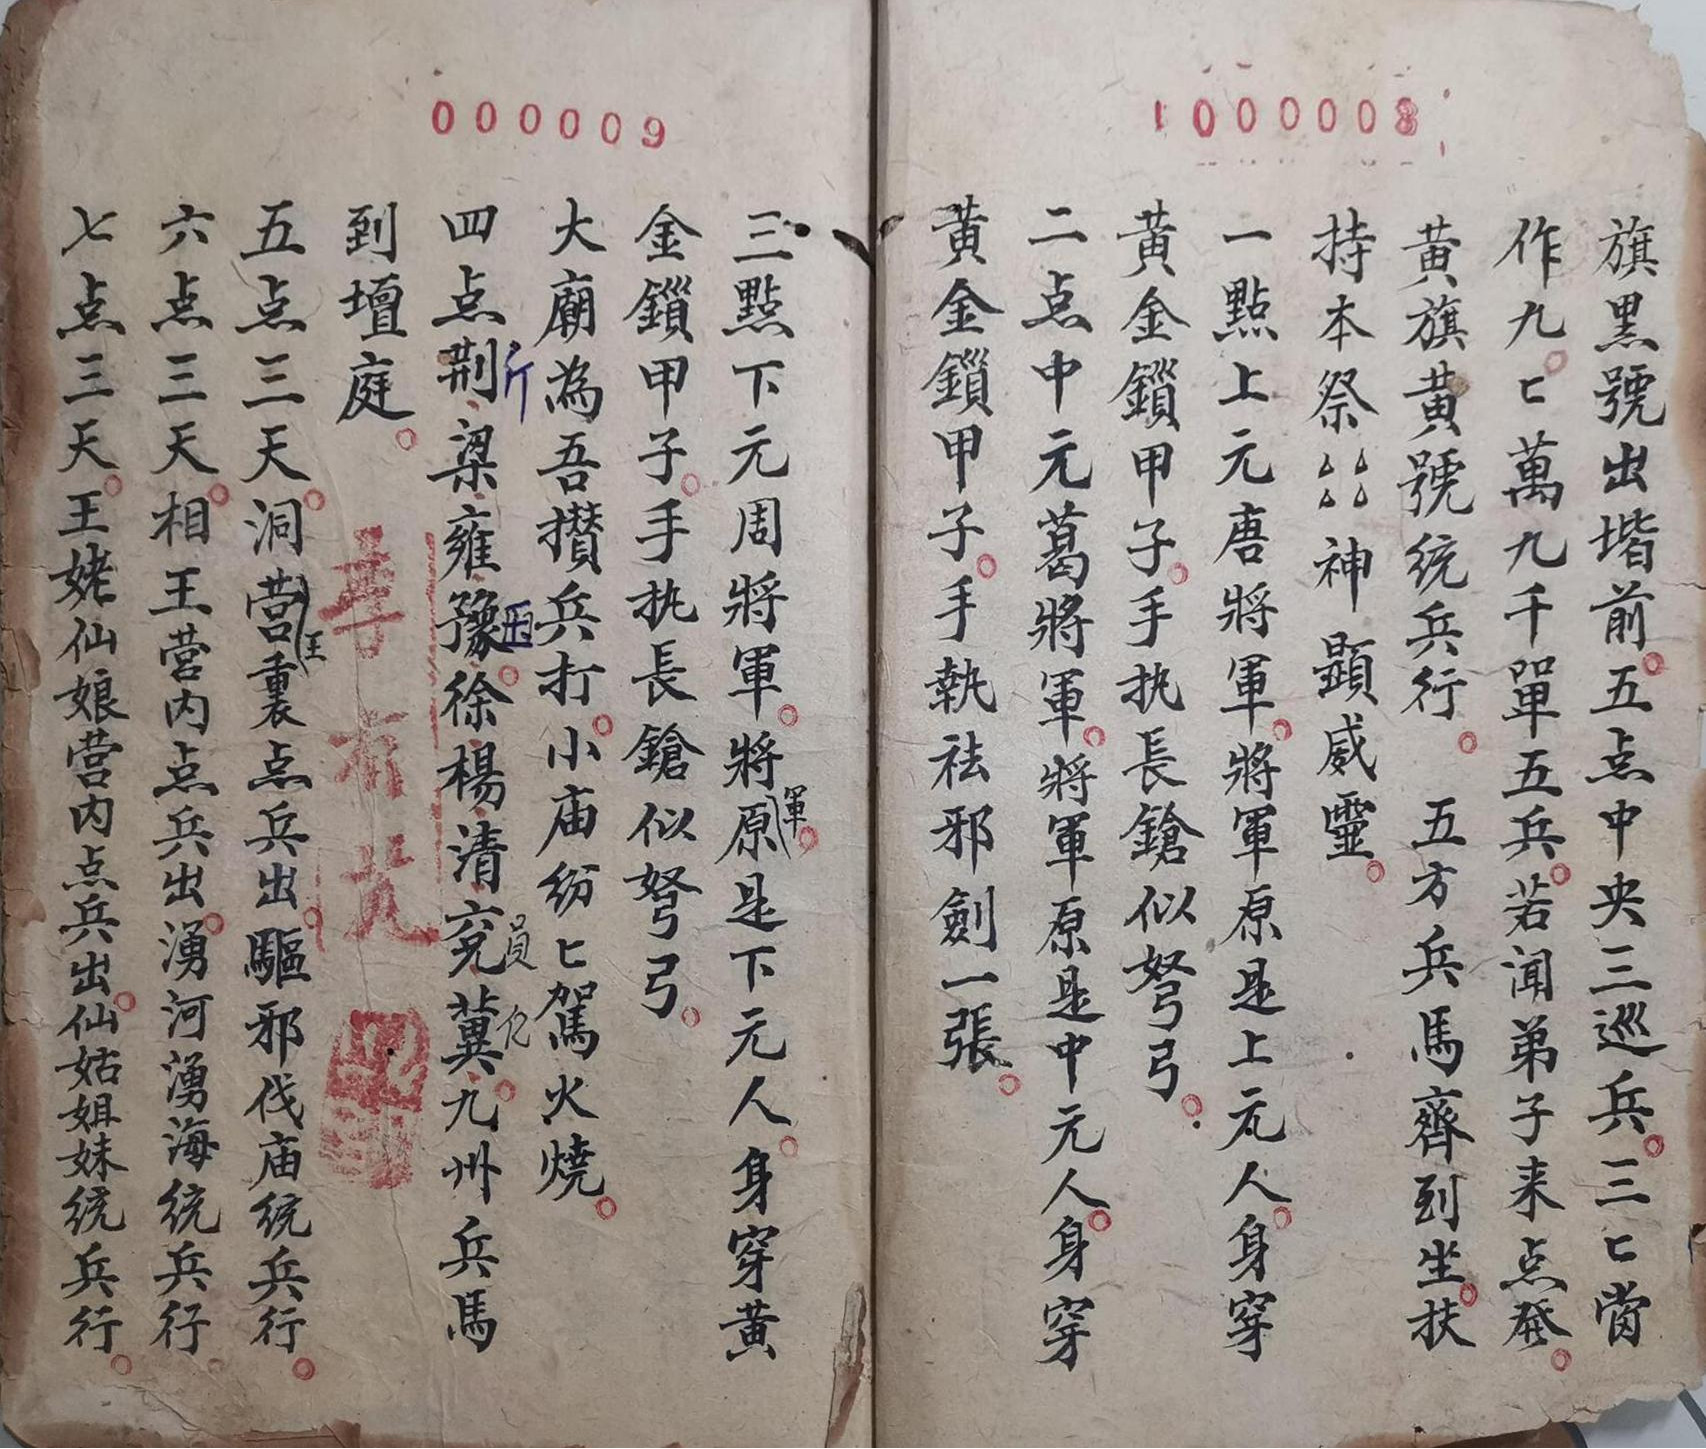 1000008
旗黑號出堦前。五点中央三巡兵。三匕當
作九。匕萬九千單五兵。若闻弟子来点發。
黄旗黄號统兵行。五方兵馬齊到坐。扶
持本祭神顕威靈。
一點上元唐將軍。將軍原是上元人。身穿
黄金鎻甲子。手执長鎗似弩弓。
二点中元葛將軍。將軍原是中元人。身穿
黄金鎻甲子。手執祛邪劍一張。
000009
三點下元周將軍。將原軍。是下元人。身穿黄
金鎻甲子。手执長鎗似弩弓。
大廟為吾攢兵打。小庙纷匕駕火燒。
四点荆梁雍豫。徐楊清兖冀。九州兵馬
斤
員
到壇庭。
五点三天。洞营王裏点兵出。驅邪伐庙统兵行。
六点三天。相王营内点兵出。湧河湧海统兵行。
七点三天。王姥仙娘营内点兵出。仙姑姐妹统兵行。